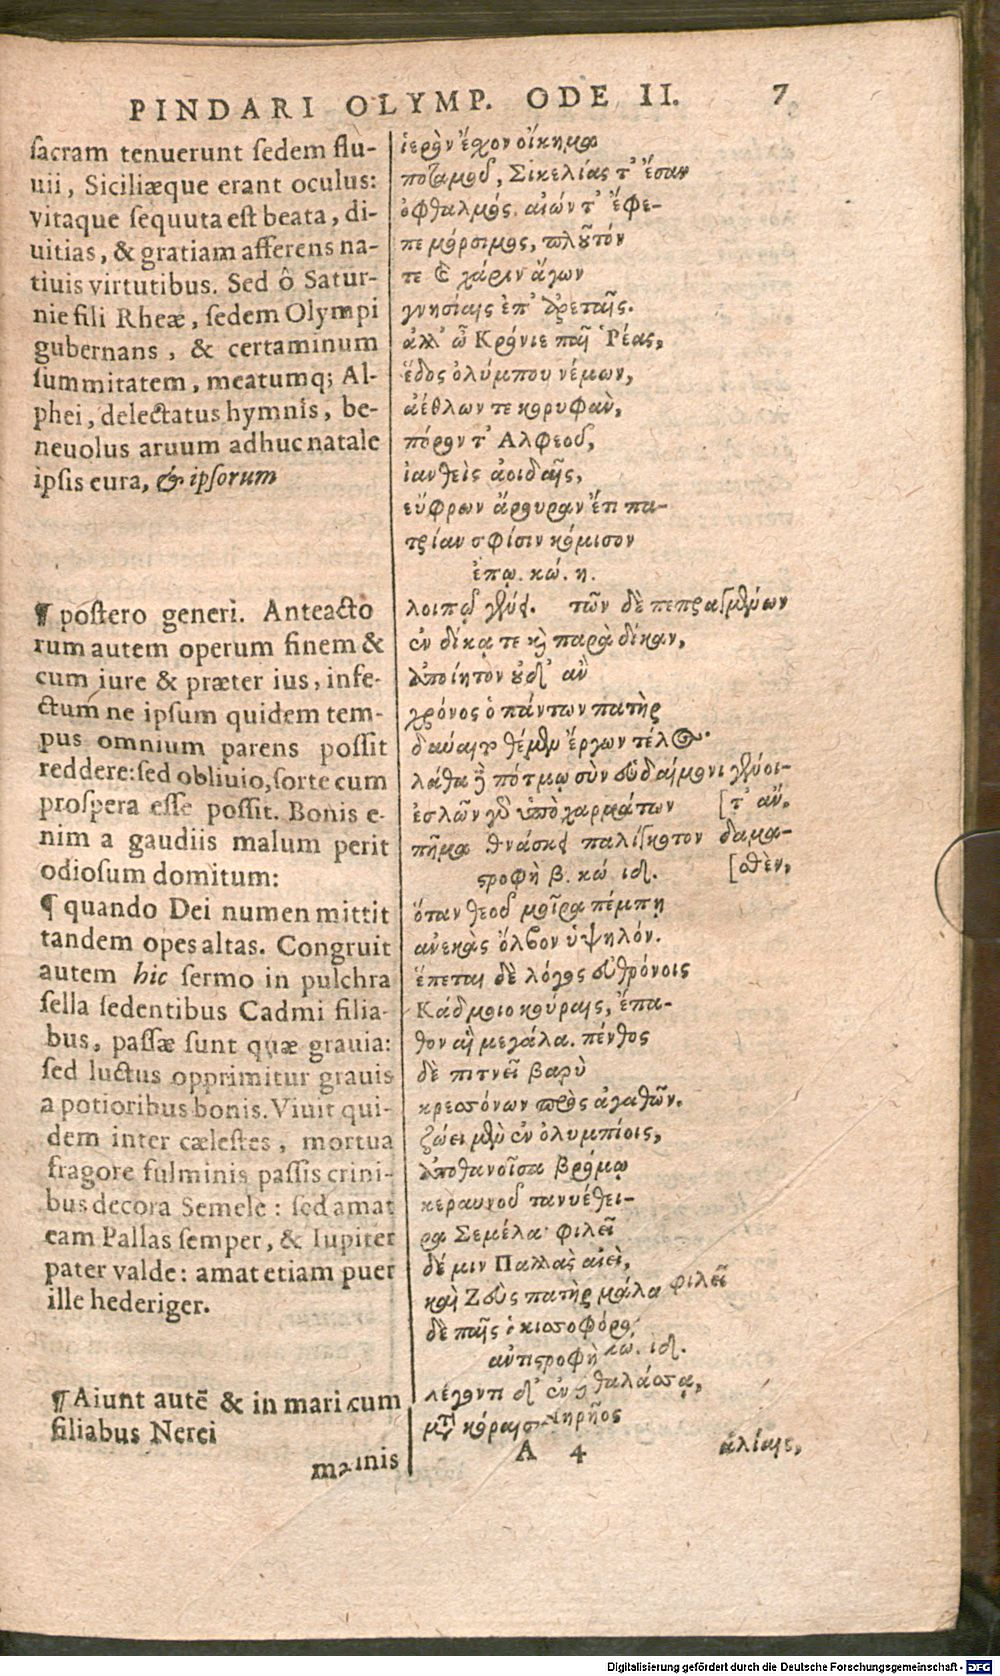 PINDARI OLYMP. ODE II. 7
sacram tenuerunt sedem flu-
uii, Siciliæque erant oculus:
vitaque sequuta est beata, di-
uitias, & gratiam afferens na-
tiuis virtutibus. Sed ô Satur-
nie fili Rheæ, sedem Olympi
gubernans, & certaminum
summitatem, meatumq; Al-
phei, delectatus hymnis, be-
neuolus aruum adhuc natale
ipsis cura, & ipsorum
¶ postero generi. Anteacto
rum autem operum finem &
cum iure & præter ius, infe-
ctum ne ipsum quidem tem-
pus omnium parens possit
reddere: sed obliuio, sorte cum
prospera esse possit. Bonis e-
nim a gaudiis malum perit
odiosum domitum:
¶ quando Dei numen mittit
tandem opes altas. Congruit
autem hic sermo in pulchra
sella sedentibus Cadmi filia-
bus, passæ sunt quæ grauia:
sed luctus opprimitur grauis
a potioribus bonis. Viuit qui-
dem inter cælestes, mortua
fragore fulminis passis crini-
bus decora Semele: sed amat
eam Pallas semper, & Iupiter
pater valde: amat etiam puer
ille hederiger.
¶ Aiunt autē & in mari cum
filiabus Nerei
marinis
ἱερὸν ἔχον οἴκημα
ποταμοῦ, Σικελίας τ' ἔσαν
ὀφθαλμός. αἰών τ' ἔφε-
πε μόρσιμος, πλοῦτόν
τε καὶ χάριν ἄγων
γνησίαις ἐπ' ἀρεταῖς.
ἀλλ' ὦ Κρόνιε παῖ Ῥέας,
ἕδος ὀλύμπου νέμων,
ἀέθλων τε κορυφὰν,
πόρον τ' Αλφεοῦ,
ἰανθεὶς ἀοιδαῖς,
εὔφρων ἄρουραν ἔτι πα-
τρίαν σφίσιν κόμισον
ἐπῳ. κώ. η.
λοιπῷ γένει. τῶν δὲ πεπραγμένων
ἐν δίκᾳ τε καὶ παρὰ δίκαν,
ἀποίητον οὐδ' ἂν
χρόνος ὁ πάντων πατὴρ
δύναιτο θέμεν ἔργων τέλος·
λάθα δὲ πότμῳ σὺν εὐδαίμονι γένοι-
ἐσλῶν γὰρ ὑπὸ χαρμάτων [τ' ἄν.
πῆμα θνάσκει παλίγκοτον δαμα-
στροφὴ β. κώ. ιδ. [σθὲν,
ὅταν θεοῦ μοῖρα πέμπῃ
ἀνεκὰς ὄλβον ὑψηλόν.
ἕπεται δὲ λόγος εὐθρόνοις
Κάδμοιο κούραις, ἔπα-
θον αἳ μεγάλα. πένθος
δὲ πιτνεῖ βαρὺ
κρεσσόνων πρὸς ἀγαθῶν.
ζώει μὲν ἐν ὀλυμπίοις,
ἀποθανοῖσα βρόμῳ
κεραυνοῦ τανυέθει-
ρα Σεμέλα· φιλεῖ
δέ μιν Παλλὰς αἰεὶ,
καὶ Ζεὺς πατὴρ μάλα φιλεῖ
δὲ παῖς ὁ κισσοφόρος·
αντιστροφὴ κώ. ιδ.
λέγοντι δ' ἐν θαλάσσᾳ,
μετὰ κόραισι Νηρῆος
A 4 ἁλίαις,
Digitalisierung gefördert durch die Deutsche Forschungsgemeinschaft - DFG